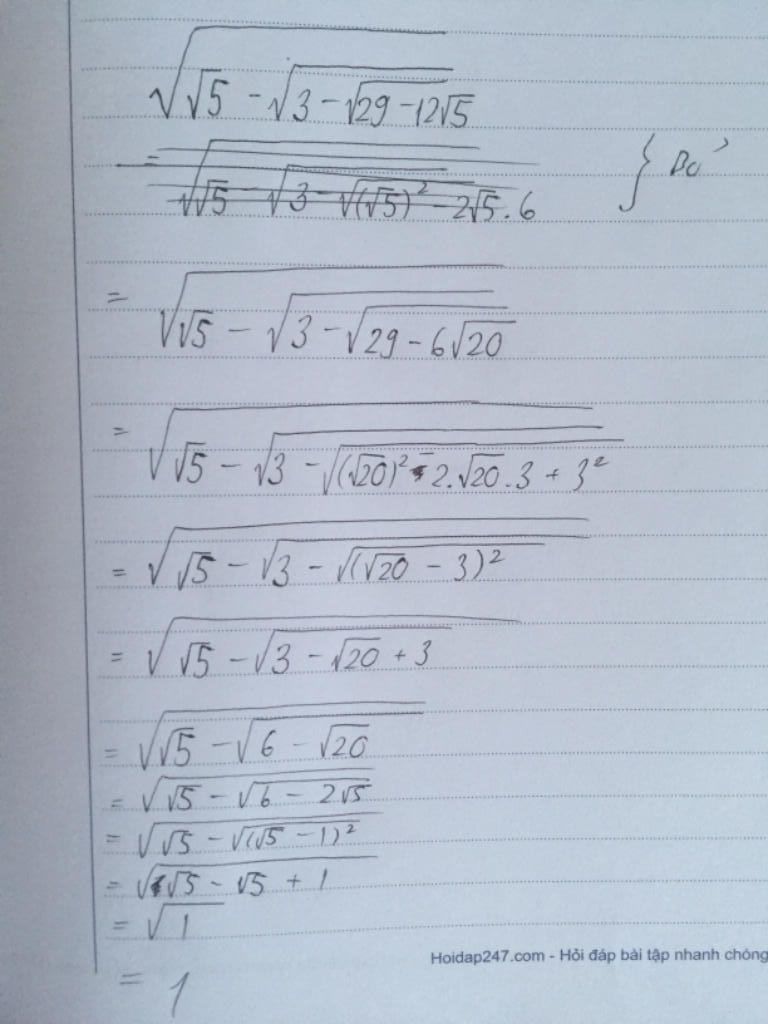 √(√5 - √(3 - √(29 - 12√5)))
= √(√5 - √(3 - √((√5)² - 2√5.6))) } Bỏ
= √(√5 - √(3 - √(29 - 6√20)))
= √(√5 - √(3 - √((√20)² - 2.√20.3 + 3²)))
= √(√5 - √(3 - √((√20 - 3)²)))
= √(√5 - √(3 - √20 + 3))
= √(√5 - √(6 - √20))
= √(√5 - √(6 - 2√5))
= √(√5 - √((√5 - 1)²))
= √(√5 - √5 + 1)
= √1
Hoidap247.com - Hỏi đáp bài tập nhanh chóng
= 1